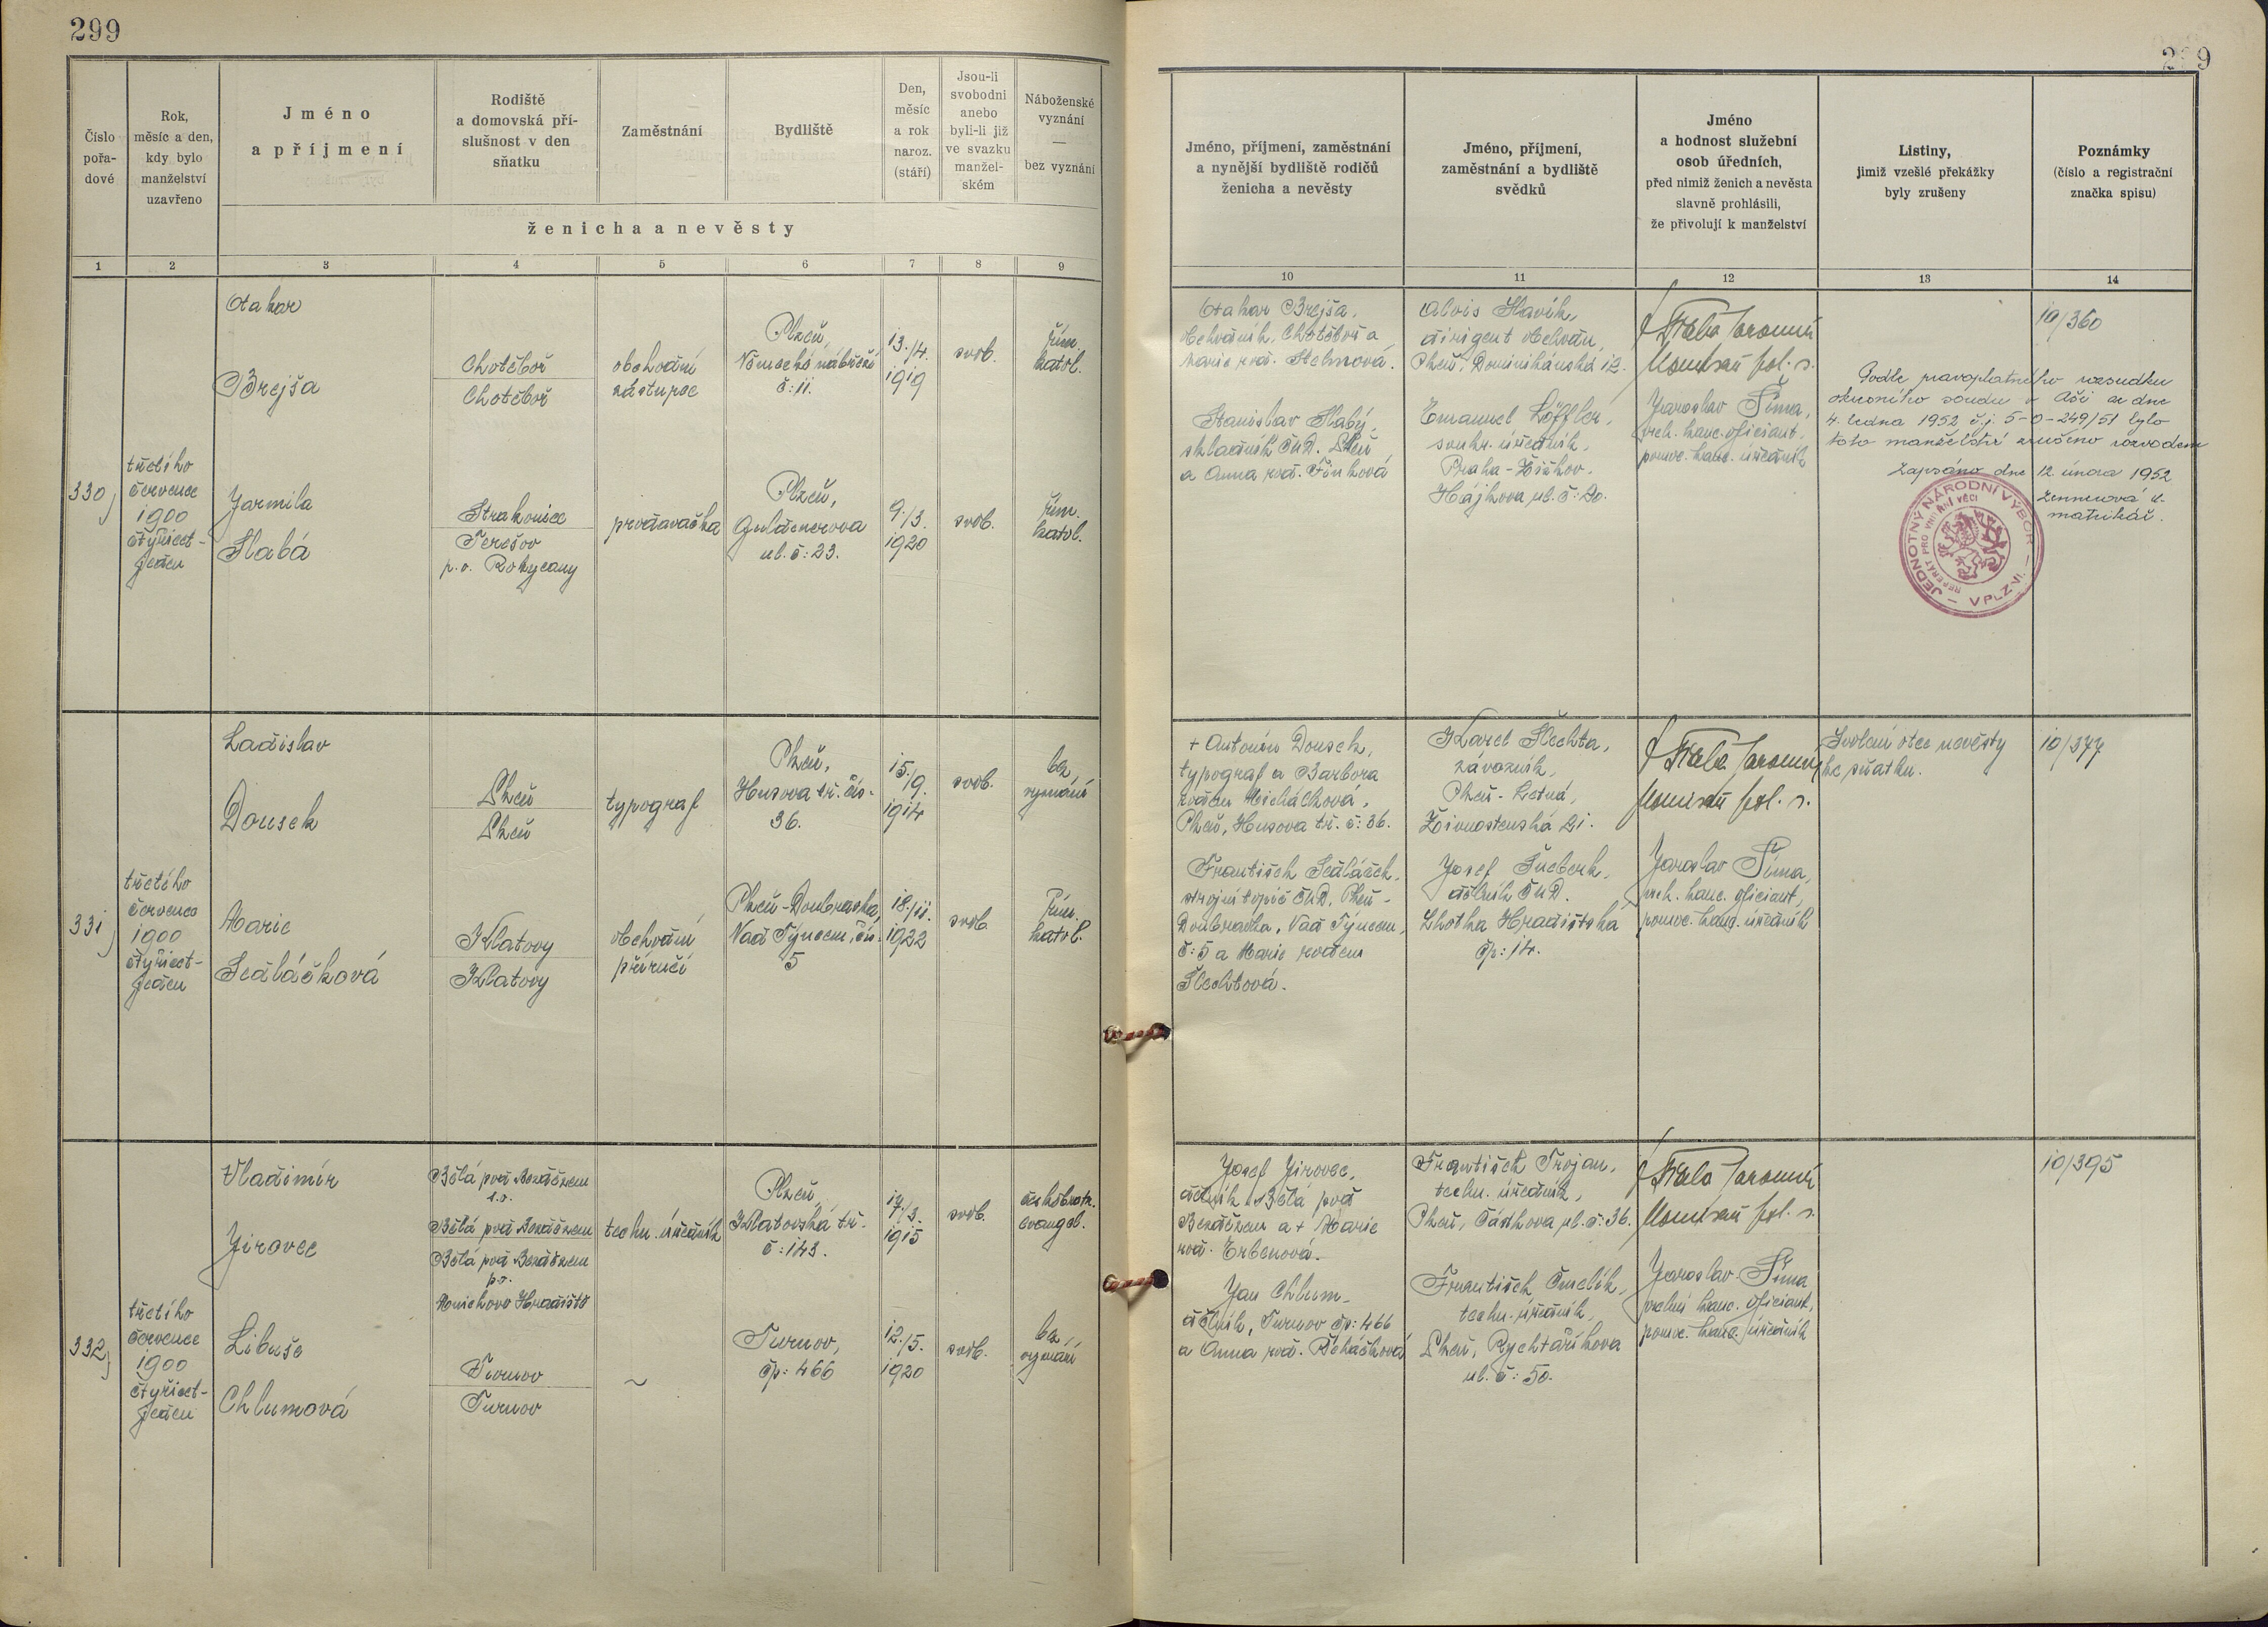 299
299
Číslo
pořa-
dové
Rok,
měsíc a den,
kdy bylo
manželství
uzavřeno
Jméno
a příjmení
Rodiště
a domovská pří-
slušnost v den
sňatku
Zaměstnání
Bydliště
Den,
měsíc
a rok
naroz.
(stáří)
Jsou-li
svobodni
anebo
byli-li již
ve svazku
manžel-
ském
Náboženské
vyznání
—
bez vyznání
ženicha a nevěsty
1 2 3 4 5 6 7 8 9
Jméno, příjmení, zaměstnání
a nynější bydliště rodičů
ženicha a nevěsty
Jméno, příjmení,
zaměstnání a bydliště
svědků
Jméno
a hodnost služební
osob úředních,
před nimiž ženich a nevěsta
slavně prohlásili,
že přivolují k manželství
Listiny,
jimiž vzešlé překážky
byly zrušeny
Poznámky
(číslo a registrační
značka spisu)
10 11 12 13 14
330
třetího
července
1900
čtyřicet-
jeden
Otakar
Brejša
Chotěboř
Chotěboř
obchodní
zástupce
Plzeň,
Německé nábřeží
č: 11.
13./4.
1919
svob.
řím.
katol.
Jarmila
Slabá
Strakonice
Terešov
p.o. Rokycany
prodavačka
Plzeň,
Guldenerova
ul. č: 23.
9./3.
1920
svob.
řím.
katol.
Otakar Brejša,
obchodník, Chotěboř a
Marie roz. Stelmová.
Stanislav Slabý,
skladník ČMD. Plzeň
a Anna roz. Finková
Alois Slavík,
dirigent obchodu,
Plzeň, Dominikánská 12.
Emanuel Löffler,
soukr. úředník,
Praha - Žižkov.
Hájkova ul. č: 20.
Jaromír
Komisař pol. s.
Jaroslav Šíma,
vrch. kanc. oficiant,
pomoc. kanc. úředník
10/360
Podle pravoplatného rozsudku
okresního soudu v Aši ze dne
4. ledna 1952 č.j. 5-0-249/51 bylo
toto manželství zrušeno rozvodem
Zapsáno dne 12. února 1952
matrikář.
JEDNOTNÝ NÁRODNÍ VÝBOR
REFERÁT PRO VNITŘNÍ VĚCI
— V PLZNI. —
331
třetího
července
1900
čtyřicet-
jeden
Ladislav
Dousek
Plzeň
Plzeň
typograf
Plzeň,
Husova tř. čís.
36.
15./9.
1914
svob.
bez
vyznání
Marie
Sedláčková
Klatovy
Klatovy
obchodní
příručí
Plzeň-Doubravka,
Nad Týncem, čís.
5
18./11.
1922
svob.
řím.
katol.
+ Antonín Dousek,
typograf a Barbora
rozen Michálková,
Plzeň, Husova tř. č: 36.
František Sedláček,
strojní topič ČMD, Plzeň-
Doubravka, Nad Týncem,
č: 5 a Marie rozen
Šlechtová.
Karel Šlechta,
závozník,
Plzeň - Letná,
Živnostenská 21.
Josef
dělník ČMD.
Lhotka Hradištská
čp: 14.
Jaromír
Komisař pol. s.
Jaroslav Šíma,
vrch. kanc. oficiant,
pomoc. kanc. úředník
Svolení otce nevěsty
ke sňatku.
10/377
332
třetího
července
1900
čtyřicet-
jeden
Vladimír
Jirovec
Bělá pod Bezdězem
s.o.
Bělá pod Bezdězem
Bělá pod Bezdězem
p.o.
Mnichovo Hradiště
techn. úředník
Plzeň,
Klatovská tř.
č: 143.
17./3.
1915
svob.
českobratr.
evangel.
Libuše
Chlumová
Turnov
Turnov
~
Turnov,
čp: 466
12./5.
1920
svob.
bez
vyznání
Josef Jirovec,
dělník, Bělá pod
Bezdězem a + Marie
roz. Erbenová.
Jan Chlum
dělník, Turnov čp: 466
a Anna roz. Řeháčková
František Trojan,
techn. úředník,
Plzeň, Čádkova ul. č: 36.
František Čmelík,
techn. úředník,
Plzeň, Rychtaříkova
ul. č: 50.
Jaromír
Komisař pol. s.
Jaroslav Šíma
vrchní kanc. oficiant,
pomoc. kanc. úředník
10/395